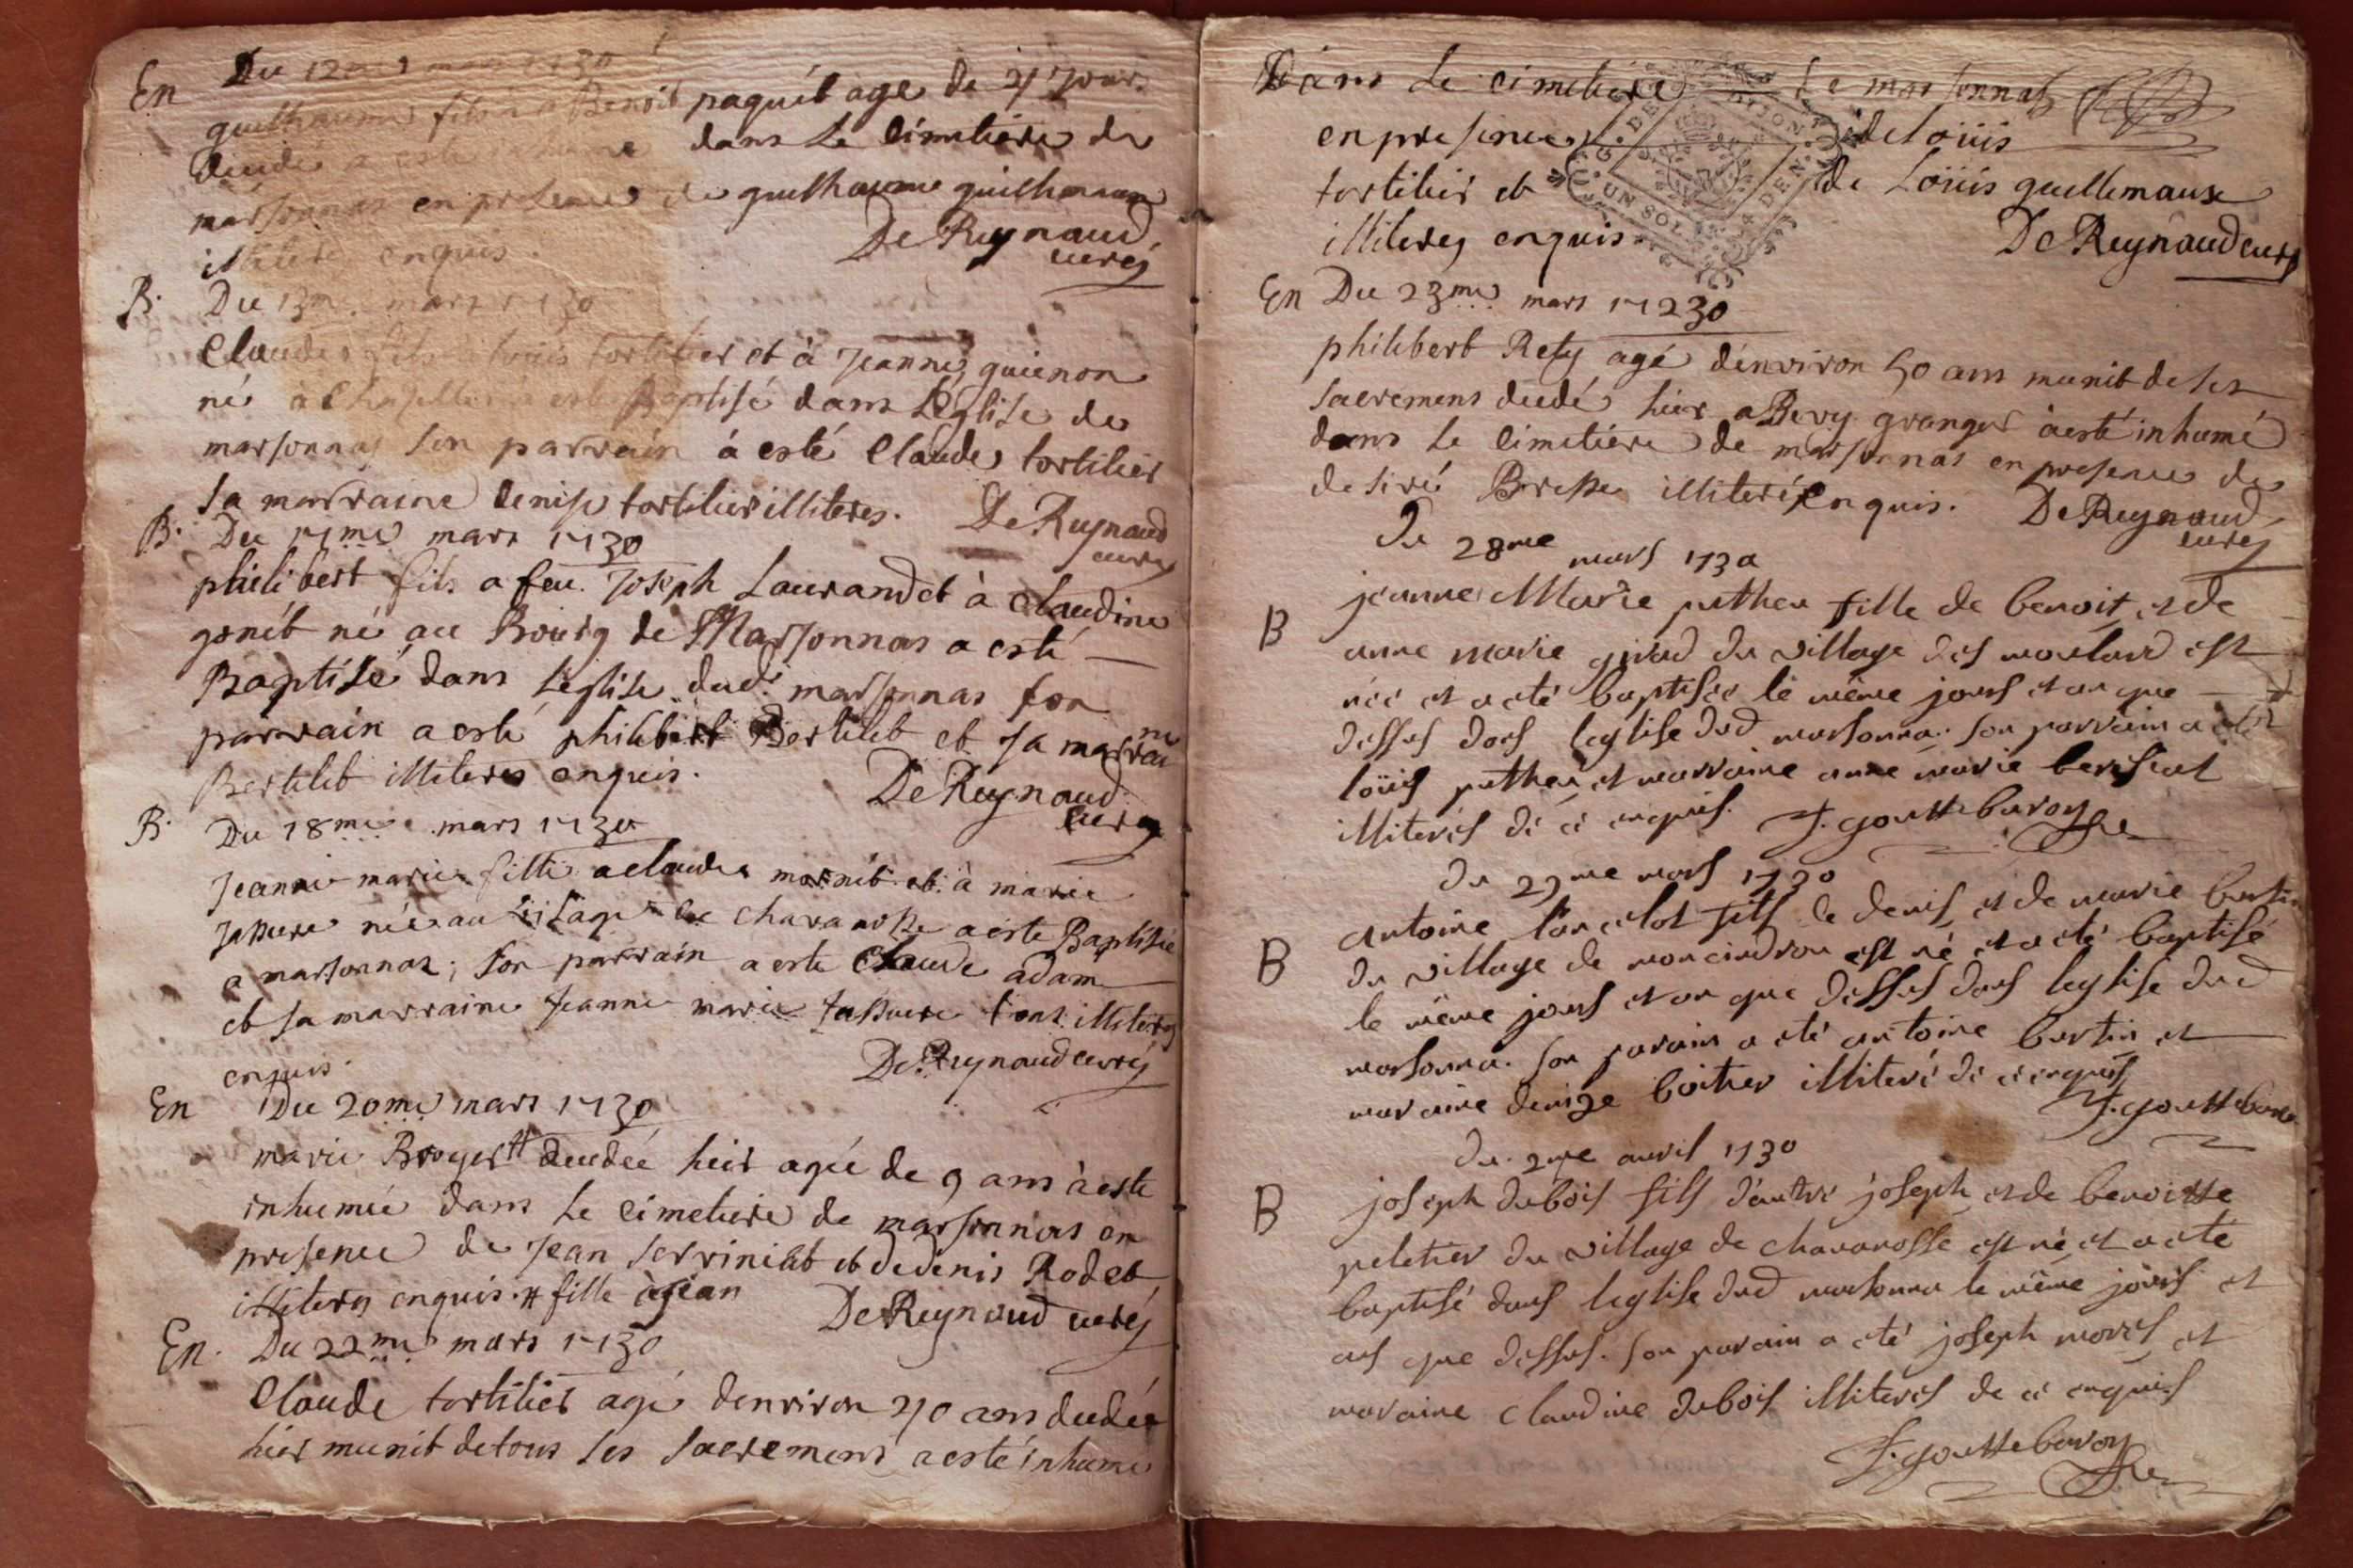 En Du 12me mars 1730
guilhaume fils a Benoit paquét age de 21 jour
decedé a esté inhumé dans le cimetiere de
marsonnas en presence de guilhaume guilhemau
illiteré enquis. De Reynaud curé
B. Du 13me mars 1730
Claude fils a Louis tortilier et à jeanne guienon
né à Chapelle a esté Baptisé dans l'église de
marsonnas son parrain á esté Claude tortilier
sa marraine denise tortilier illiteres. De Reynaud curé
B. Du 17me mars 1730
philibert fils a feu. Joseph Laurand et à claudine
gonét né au Bourg de Marsonnas a esté
Baptisé dans l'église dud. marsonnas son
parrain a esté philibert Bertelet et sa marraine
Bertelet illiteres enquis. De Reynaud curé
B. Du 18me mars 1730
Jeanne marie fille a claude mornét et à marie
née au village de chavanosse a esté Baptisée
a marsonnas; son parrain a esté Claude adam
et sa marraine Jeanne marie tous illiteres
enquis. De Reynaud curé
En Du 20me mars 1730
marie Broyer # decedée hier agée de 9 ans à esté
inhumée dans le cimetiere de marsonnas en
presence de jean et de denis Rodet
illiteres enquis. # fille à jean De Reynaud curé
En. Du 22me mars 1730
Claude tortilier agé denviron 40 ans decedé
hier munit de tous ses sacremens a esté inhumé
Dans le cimetiere de marsonnas
G. DE DIJON
UN SOL 4 DEN.
en presence de Loüis
tortilier et de Loüis guillemaux
illiteres enquis. De Reynaud curé
En Du 23me mars 17230
philibert Rety agé d'environ 50 ans munit de ses
sacremens decedé hier a Bevy granger à esté inhumé
dans le cimetière de marsonnas en presence de
desiré Bresse illiteré enquis. De Reynaud curé
Du 28me mars 1730
B jeanne Marie puthen fille de benoit, et de
anne marie girad du village des moulard est
née et a eté baptisée le même jours et an que
dessus dans leglise dud marsonna. son parrain a eté
loüis puthen, et marraine anne marie
illiterés de ce enquis. J. gouttebaron
Du 29me mars 1730
B antoine lancelot fils de denis et de marie bertin
du village de moncindrou est né et a eté baptisé
le même jours et an que dessus dans leglise dud
marsonna. son parain a eté antoine bertin et
maraine denize boitier illiteré de ce enquis
J. gouttebaron
du. 2me avril 1730
B joseph dubois fils d'autre joseph et de benoitte
peletier du village de chavanosse est né et a eté
baptisé dans leglise dud marsonna le même jours et
ans que dessus. son parain a eté joseph morel et
maraine claudine dubois illiteres de ce enquis
J. gouttebaron